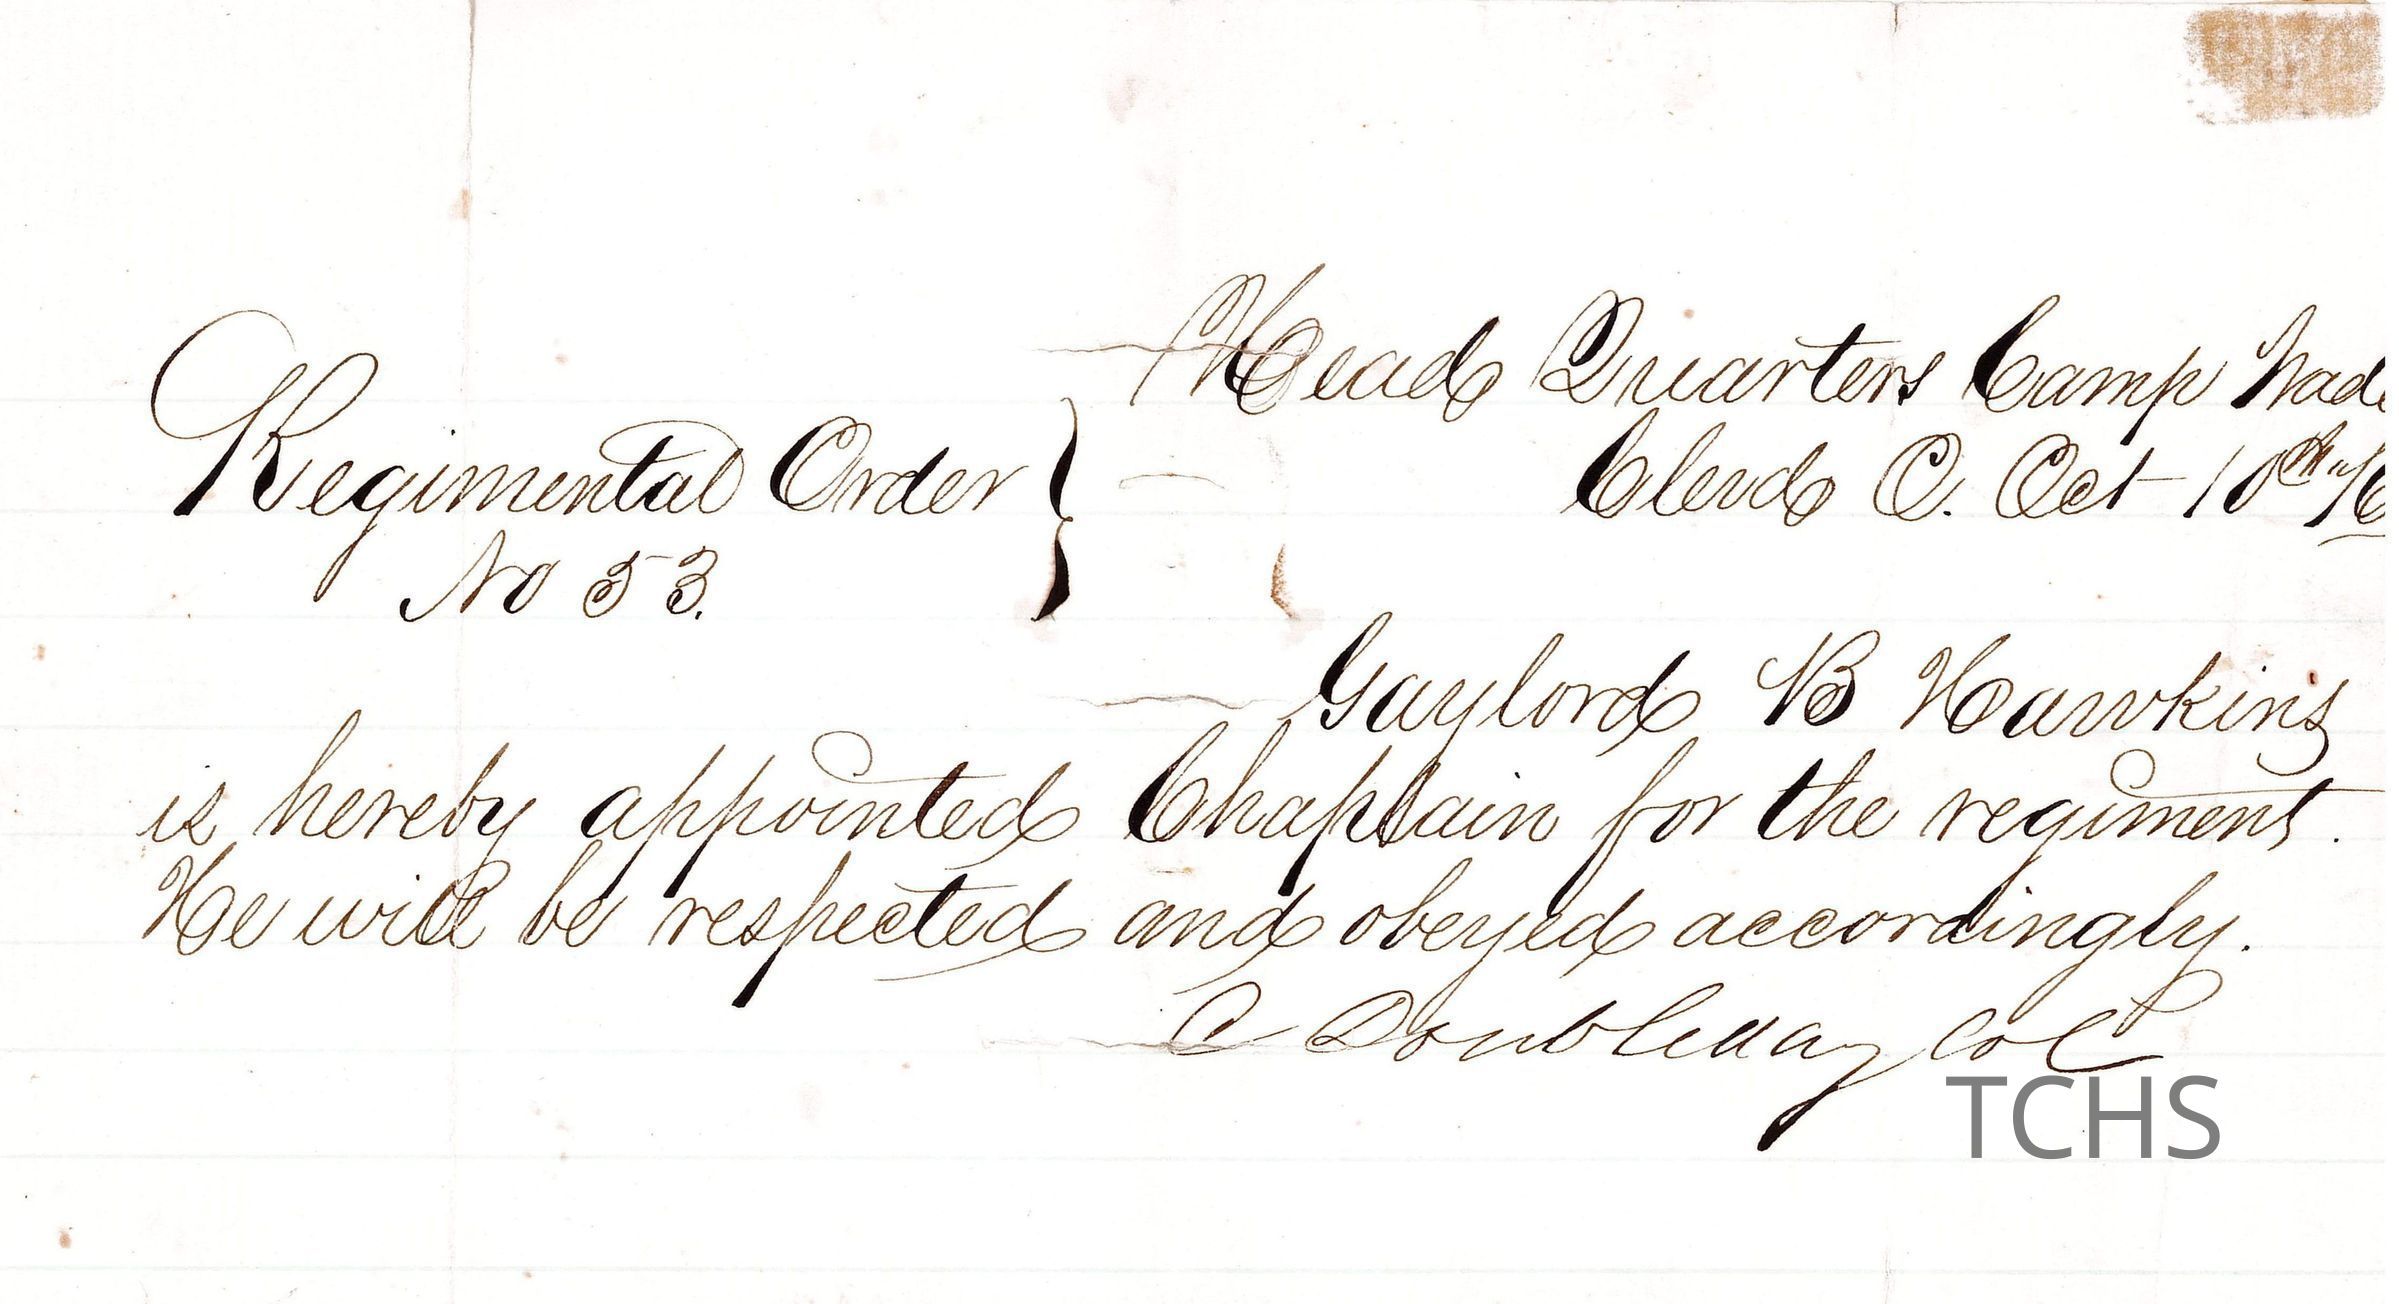 Head Quarters Camp Wade
Clevd O. Oct 10th /6
Regimental Order
No 53.
Gaylord B Hawkins
is hereby appointed Chaplain for the regiment.
He will be respected and obeyed accordingly.
C Doubleday Col
TCHS